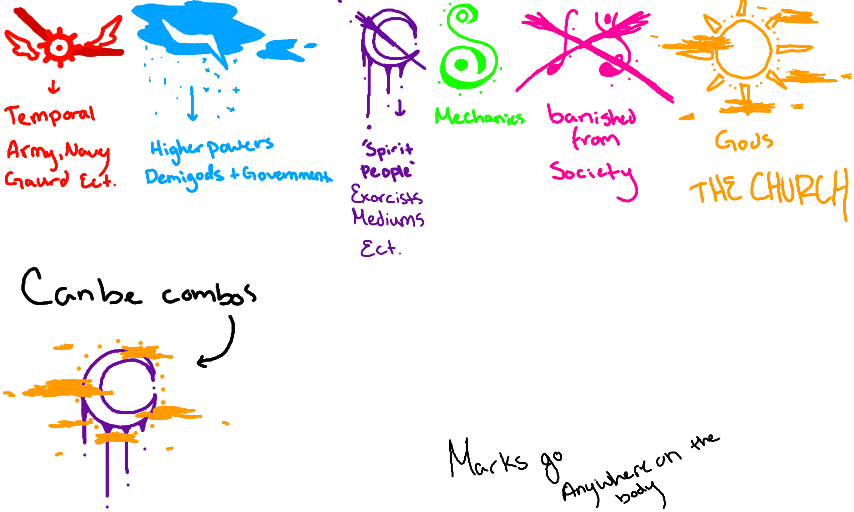 Temporal
Army, Navy
Gaurd Ect.
Higher powers
Demigods + Government
"Spirit
People"
Exorcists
Mediums
Ect.
Mechanics
banished
from
Society
Gods
THE CHURCH
Can be combos
Marks go
Anywhere on the
body